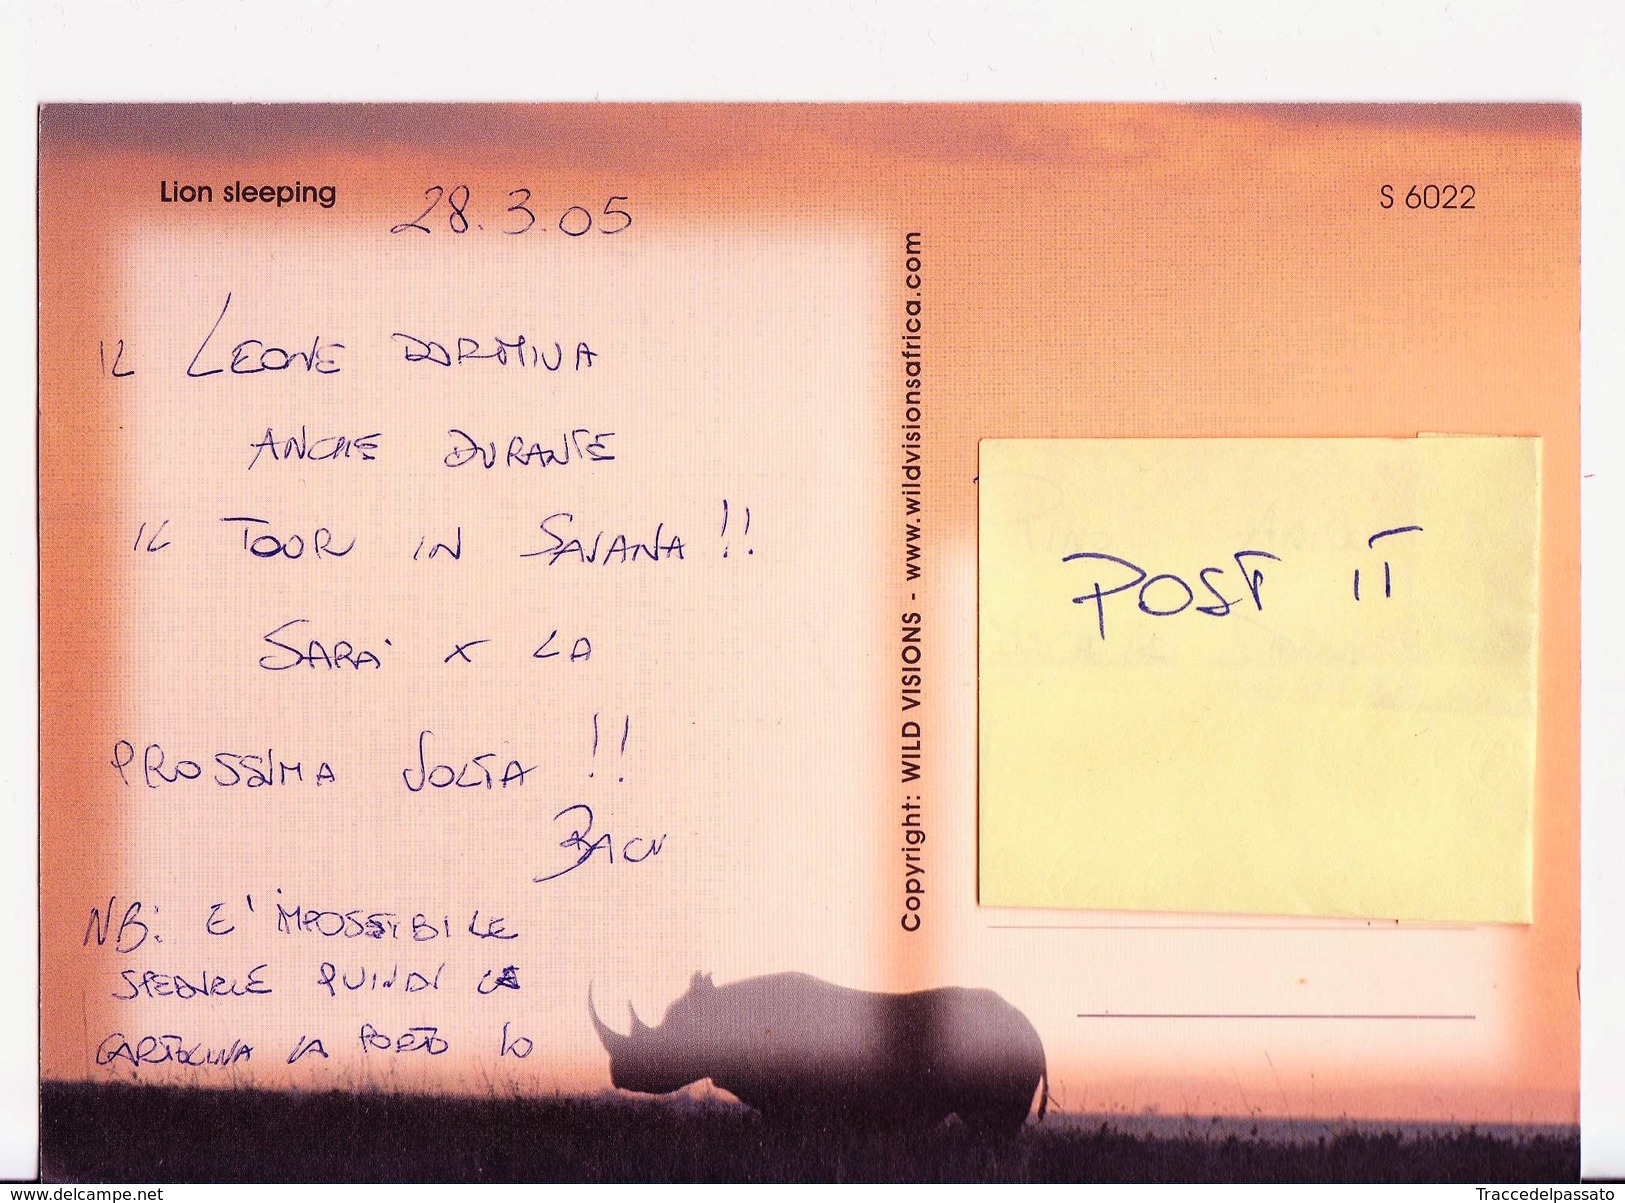 Lion sleeping
28.3.05
S 6022
IL LEONE DORMIVA
ANCHE DURANTE
IL TOUR IN SAVANA!!
SARA' X LA
PROSSIMA VOLTA!!
NB: E' IMPOSSIBILE
SPEDIRLE QUINDI LA
CARTOLINA LA PORTO IO
Copyright: WILD VISIONS - www.wildvisionsafrica.com
POST IT
www.delcampe.net
Traccedelpassato